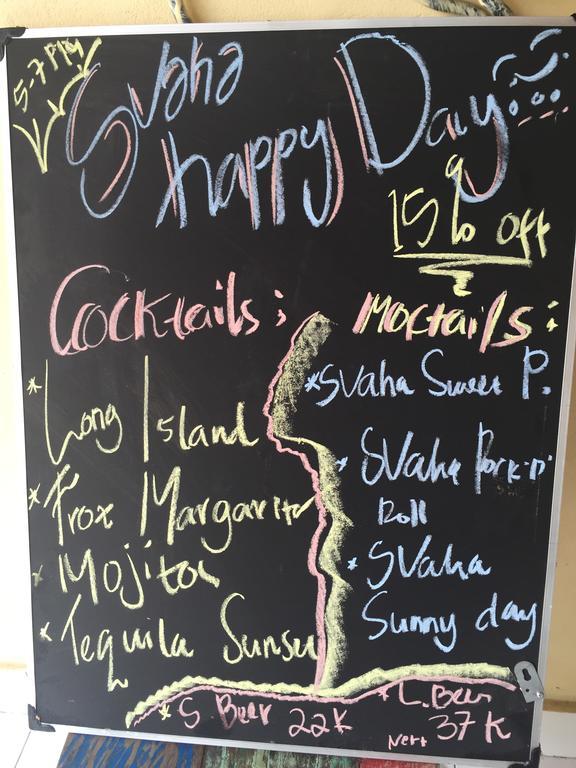 5-7 PM
Svaha
happy Day
15% off
Cocktails:
* Long Island
* Froz Margarita
* Mojitos
* Tequila
Moctails:
* Svaha Sweet P.
* SVaha
Roll
* SVaha
Sunny day
* S. Beer 22K
* L. Beer
Nett 37K